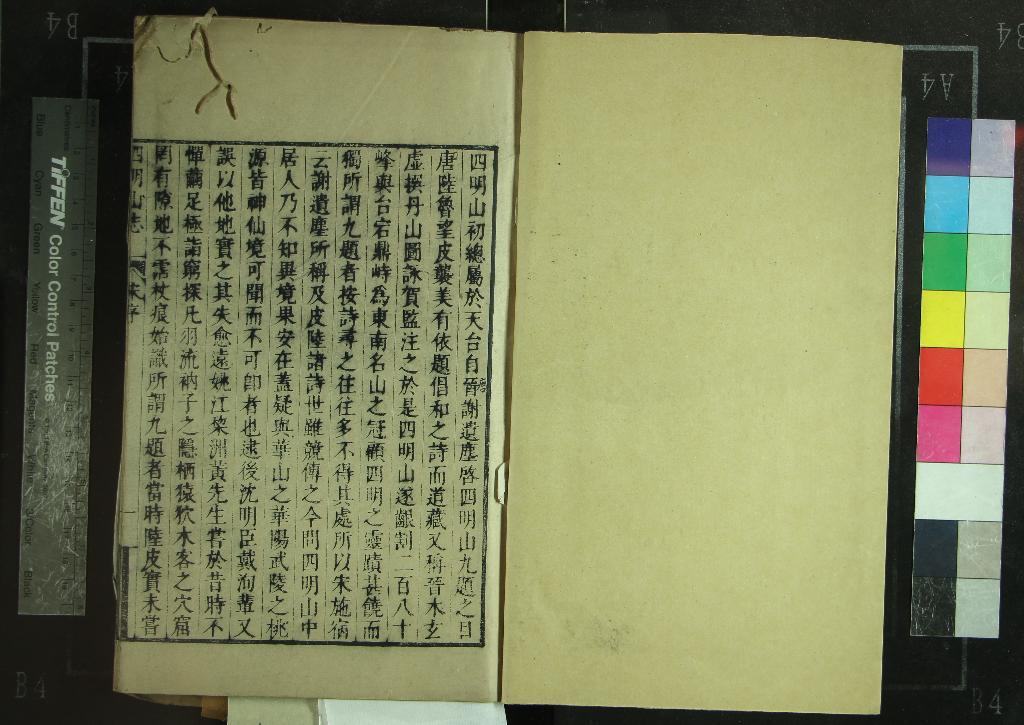 四明山初總屬於天台自晉謝遺塵啓四明山九題之目
唐陸魯望皮襲美有依題倡和之詩而道藏又稱晉木玄
虛撰丹山圖詠賀監注之於是四明山遂齦割二百八十
峰與台宕鼎峙為東南名山之冠顧四明之靈蹟甚饒而
獨所謂九題者按詩尋之往往多不得其處所以宋施宿
云謝遺塵所稱及皮陸諸詩世雖競傳之今問四明山中
居人乃不知異境果安在蓋疑與華山之華陽武陵之桃
源皆神仙境可聞而不可卽者也逮後沈明臣戴洵輩又
誤以他地實之其失愈遠姚江棃洲黃先生嘗於昔時不
憚繭足極詣窮探凡羽流衲子之隱栖猿狖木客之穴窟
罔有隙地不需杖痕始識所謂九題者當時陸皮實未嘗
四明山志
宋序
TIFFEN Color Control Patches
Blue Cyan Green Yellow Red Magenta White 3/Color Black
B4
B4
A4
B4
B4